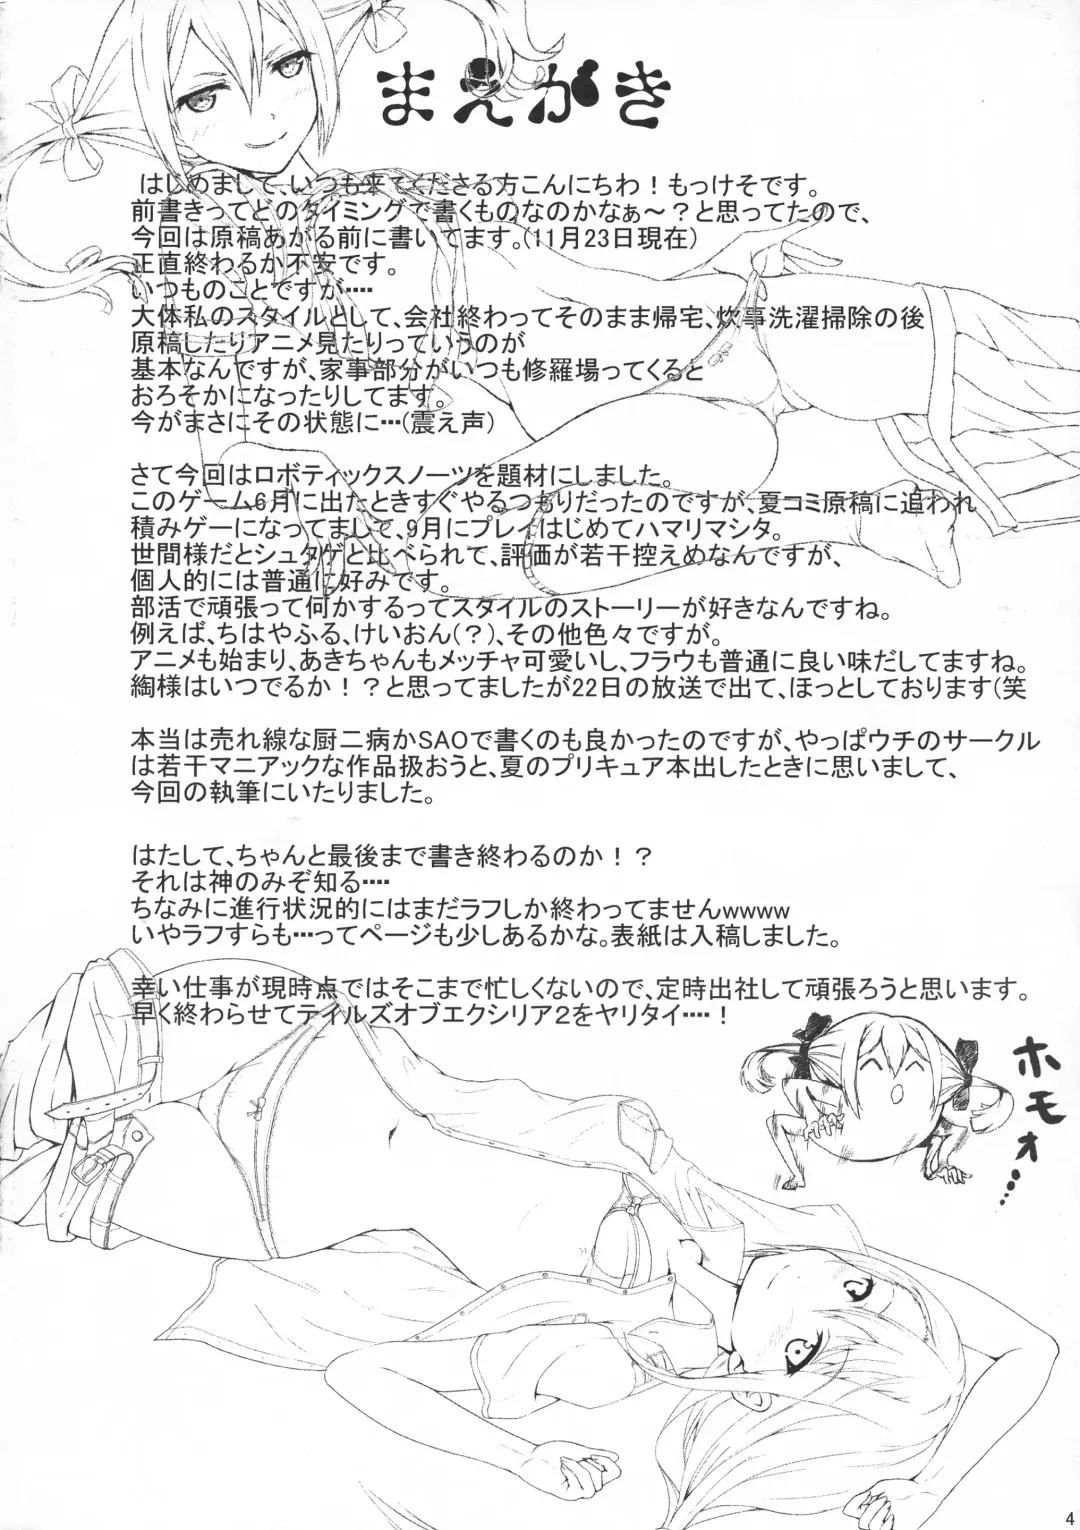 まえがき
はじめまして、いつも来てくださる方こんにちわ！もっけそです。
前書きってどのタイミングで書くものなのかなぁ～？と思ってたので、
今回は原稿あがる前に書いてます。(11月23日現在)
正直終わるか不安です。
いつものことですが‥‥
大体私のスタイルとして、会社終わってそのまま帰宅、炊事洗濯掃除の後
原稿したりアニメ見たりっていうのが
基本なんですが、家事部分がいつも修羅場ってくると
おろそかになったりしてます。
今がまさにその状態に…(震え声)
さて今回はロボティックスノーツを題材にしました。
このゲーム6月に出たときすぐやるつもりだったのですが、夏コミ原稿に追われ
積みゲーになってまして、9月にプレイはじめてハマリマシタ。
世間様だとシュタゲと比べられて、評価が若干控えめなんですが、
個人的には普通に好みです。
部活で頑張って何かするってスタイルのストーリーが好きなんですね。
例えば、ちはやふる、けいおん(？)、その他色々ですが。
アニメも始まり、あきちゃんもメッチャ可愛いし、フラウも普通に良い味だしてますね。
綯様はいつでるか！？と思ってましたが22日の放送で出て、ほっとしております(笑
本当は売れ線な厨二病かSAOで書くのも良かったのですが、やっぱウチのサークル
は若干マニアックな作品扱おうと、夏のプリキュア本出したときに思いまして、
今回の執筆にいたりました。
はたして、ちゃんと最後まで書き終わるのか！？
それは神のみぞ知る‥‥
ちなみに進行状況的にはまだラフしか終わってませんwwww
いやラフすらも…ってページも少しあるかな。表紙は入稿しました。
幸い仕事が現時点ではそこまで忙しくないので、定時出社して頑張ろうと思います。
早く終わらせてテイルズオブエクシリア２をヤリタイ‥‥！
ホモォ…
4